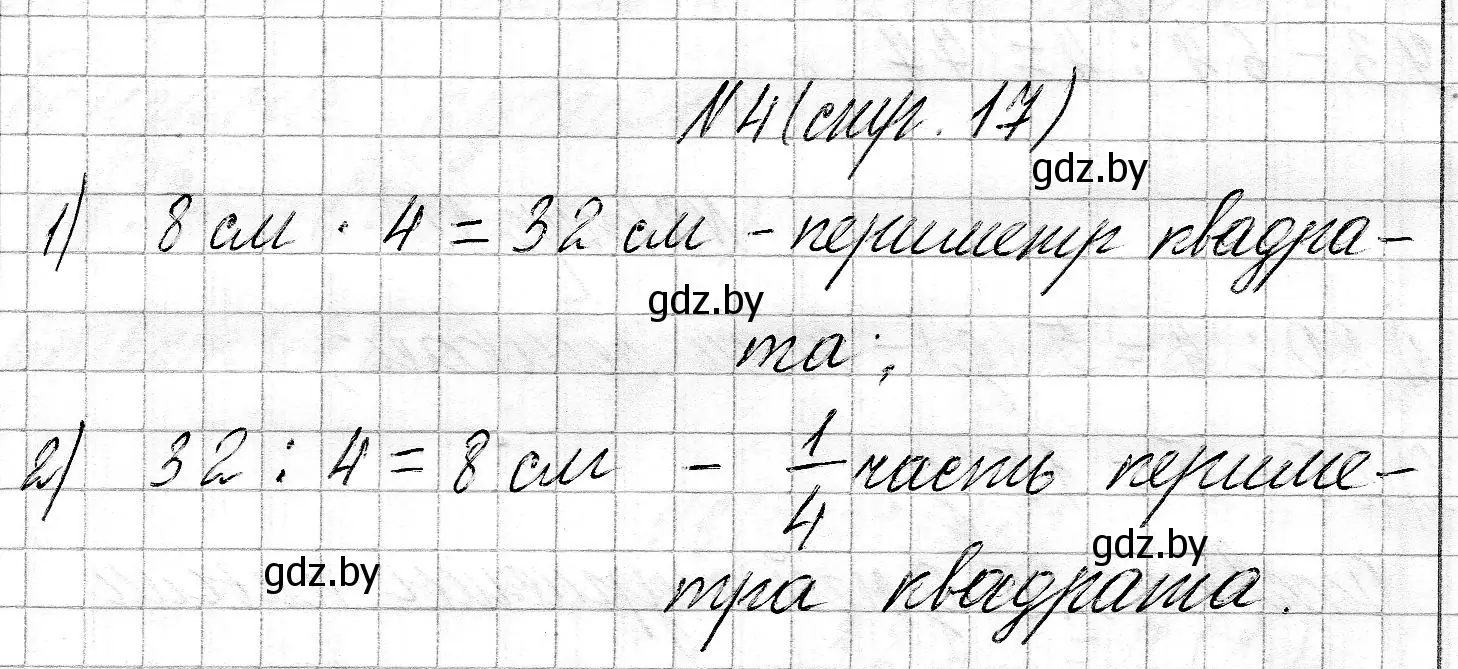 N4(стр. 17)
gdz.by
1) 8 см · 4 = 32 см - периметр квадра-
gdz.by
та;
2) 32 : 4 = 8 см - 1/4 часть периме-
gdz.by
gdz.by
тра квадрата.